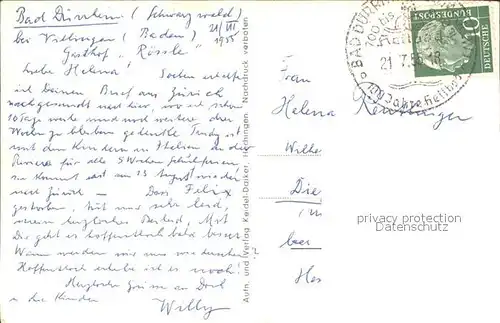 Bad Dürrheim (Schwarzwald)
bei Villingen (Baden) 21/VII
Gasthof "Rössle" 1955
Liebe Helena! Soeben erhielt
ich Deinen Brief aus Zürich
nachgesandt nach hier, wo ich schon
10 Tage weile und noch weitere drei
Wochen zu bleiben gedenke
mit den Kindern in Italien an der
Riviera für alle 5 Wochen Schulferien
Sie kommt erst am 15 August wieder
nach Zürich - Dass Felix
gestorben, tut mir sehr leid,
mein herzliches Beileid, Mit
Dir geht es hoffentlich bald besser
Wann werden wir uns wiedersehen?
Hoffentlich erlebe ich es noch!
Herzliche Grüsse an Dich
u die Kinder Willy
Aufn. und Verlag Keidel-Daiker, Hechingen Nachdruck verboten
BAD DÜRRHEIM
700 bis
21.7.55-18
DEUTSCHE BUNDESPOST
10
Frau
Helena
Wilhe
Die
bei
Hes
privacy protection
Datenschutz